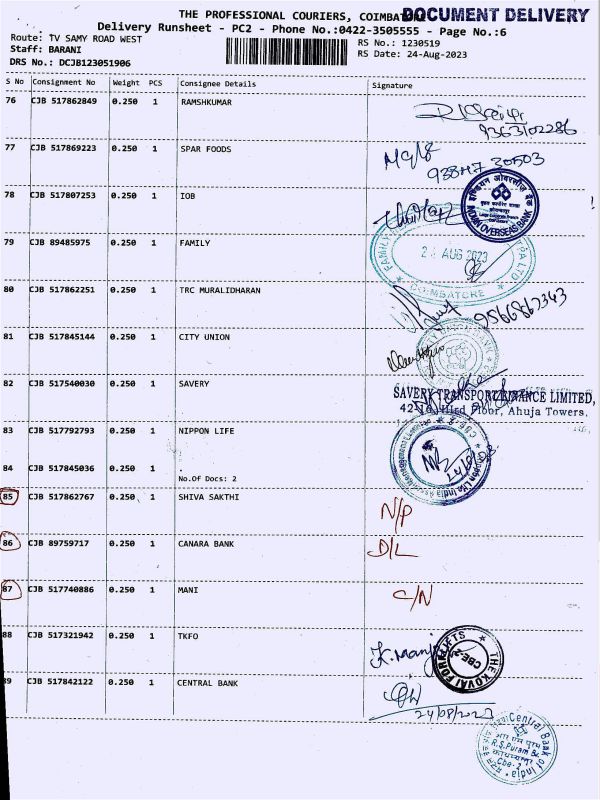 THE PROFESSIONAL COURIERS, COIMBATORE
DOCUMENT DELIVERY
Delivery Runsheet - PC2 - Phone No.:0422-3505555 - Page No.:6
Route: TV SAMY ROAD WEST
RS No.: 1230519
Staff: BARANI
RS Date: 24-Aug-2023
DRS No.: DCJB123051906
S No Consignment No Weight PCS Consignee Details Signature
76 CJB 517862849 0.250 1 RAMSHKUMAR
9363102286
77 CJB 517869223 0.250 1 SPAR FOODS
30503
78 CJB 517807253 0.250 1 IOB
INDIAN OVERSEAS BANK
79 CJB 89485975 0.250 1 FAMILY
AUG 2023
COIMBATORE
80 CJB 517862251 0.250 1 TRC MURALIDHARAN
9566867343
81 CJB 517845144 0.250 1 CITY UNION
82 CJB 517540030 0.250 1 SAVERY
SAVERY TRANSPORT FINANCE LIMITED,
Floor, Ahuja Towers.
83 CJB 517792793 0.250 1 NIPPON LIFE
84 CJB 517845036 0.250 1
No.Of Docs: 2
85 CJB 517862767 0.250 1 SHIVA SAKTHI N/P
86 CJB 89759717 0.250 1 CANARA BANK D/L
87 CJB 517740886 0.250 1 MANI C/N
88 CJB 517321942 0.250 1 TKFO
K. Manj
THE KOVAI FORKLIFTS
CBE-2
89 CJB 517842122 0.250 1 CENTRAL BANK
24/08/2023
Central Bank of India
R.S.Puram
Cbe-2